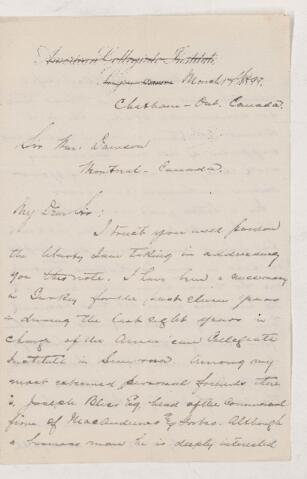 American Collegiate Institute
Smyrna March 17/97.
Chatham - Ont. Canada.
Sir Wm. Dawson
Montreal - Canada.
My Dear Sir;
I trust you will pardon
the liberty I am taking in addressing
you this note. I have been a missionary
in Turkey for the past eleven years
- during the last eight years in
charge of the American Collegiate
Institute in Smyrna. Among my
most esteemed personal friends there
is Joseph Bliss Esq. head of the commercial
firm of MacAndrews & Forbes. Although
a business man he is deeply interested